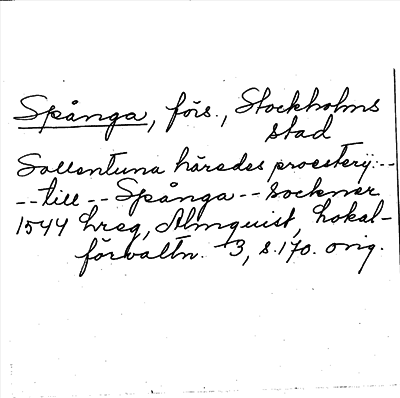 Spånga, förs., Stockholms
stad
Sollentuna härades prosterij:--
--till -- Spånga -- Socknar
1544 hreg, Almquist, Lokal-
förvaltn. 3, s.170. orig.